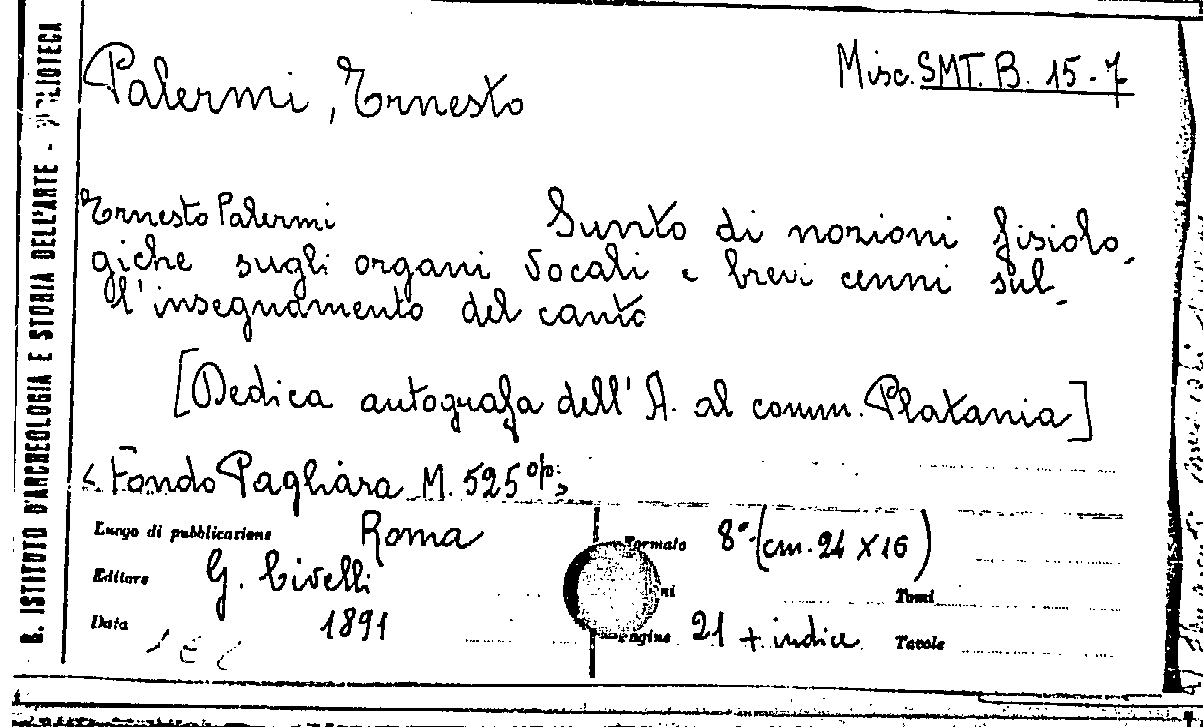 R. ISTITUTO D'ARCHEOLOGIA E STORIA DELL'ARTE - BIBLIOTECA
Palermi, Ernesto
Misc. SMT. B. 15-7
Ernesto Palermi Sunto di nozioni fisiolo-
giche sugli organi vocali e brevi cenni sul-
l'insegnamento del canto
[Dedica autografa dell'A. al comm. Platania]
< Fondo Pagliara M. 525 op: >
Luogo di pubblicazione Roma
Formato 8° (cm. 24 X 16)
Editore G. Civelli
ni
Tomi
Data 1891
Pagine 21 + indice
Tavole